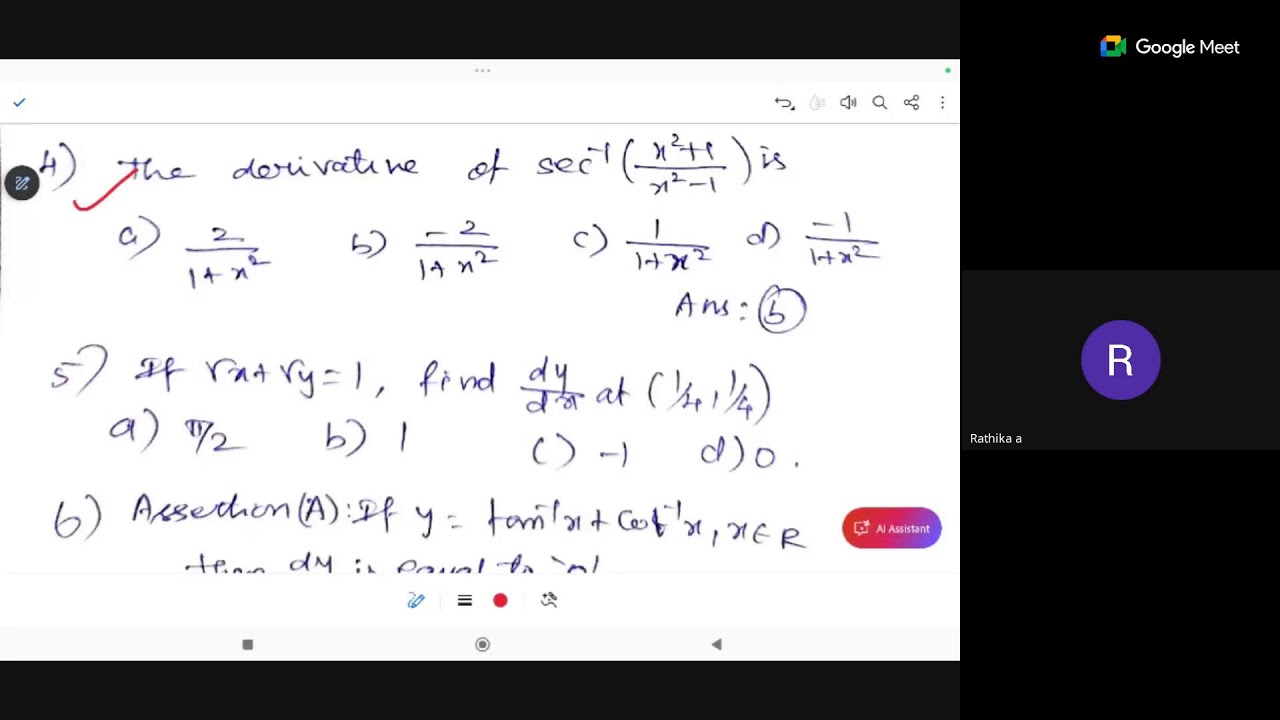 Google Meet
4) The derivative of sec⁻¹(x²+1/x²-1) is
a) 2/1+x² b) -2/1+x² c) 1/1+x² d) -1/1+x²
Ans: b
5) If √x+√y=1, find dy/dx at (1/4, 1/4)
a) π/2 b) 1 c) -1 d) 0.
6) Assertion (A): If y = tan⁻¹x + cot⁻¹x, x∈R
then dy is equal to
AI Assistant
R
Rathika a